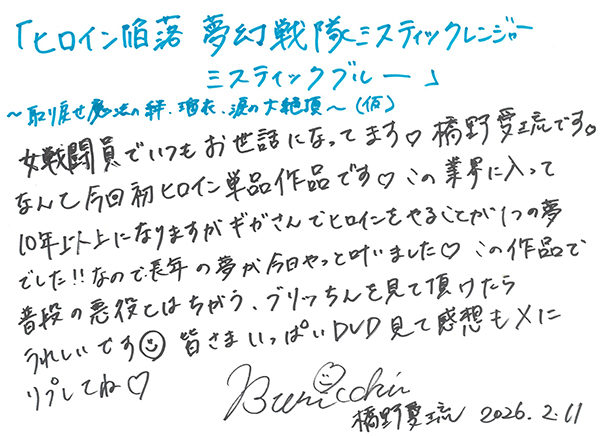 「ヒロイン陥落 夢幻戦隊ミスティックレンジャー
ミスティックブルー」
〜取り戻せ魔法の絆、瑠衣、涙の大絶頂〜(仮)
女戦闘員でいつもお世話になってます♡橋野愛琉です。
なんと今回初ヒロイン単品作品です♡この業界に入って
10年以上になりますがギガさんでヒロインをやることが1つの夢
でした!!なので長年の夢が今日やっと叶いました♡この作品で
普段の悪役とはちがう、ブリっちんを見て頂けたら
うれしいです☺ 皆さまいっぱいDVD見て感想もXに
リプしてね♡
Buricchin
橋野愛琉 2026.2.11